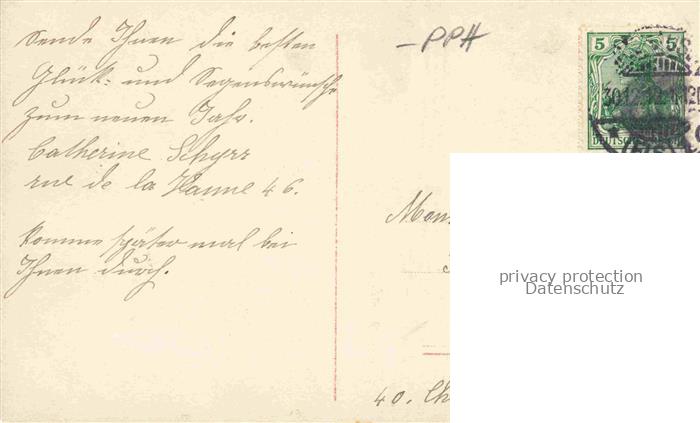 Sende Ihnen die besten
Glück- und Segenswünsche
zum neuen Jahr.
Catherine Schyrr
rue de la Hanne 46.
Komme später mal bei
Ihnen durch.
-PPH
5 5
30.12.
DEUTSCHES
Mon
40. Ch
privacy protection
Datenschutz